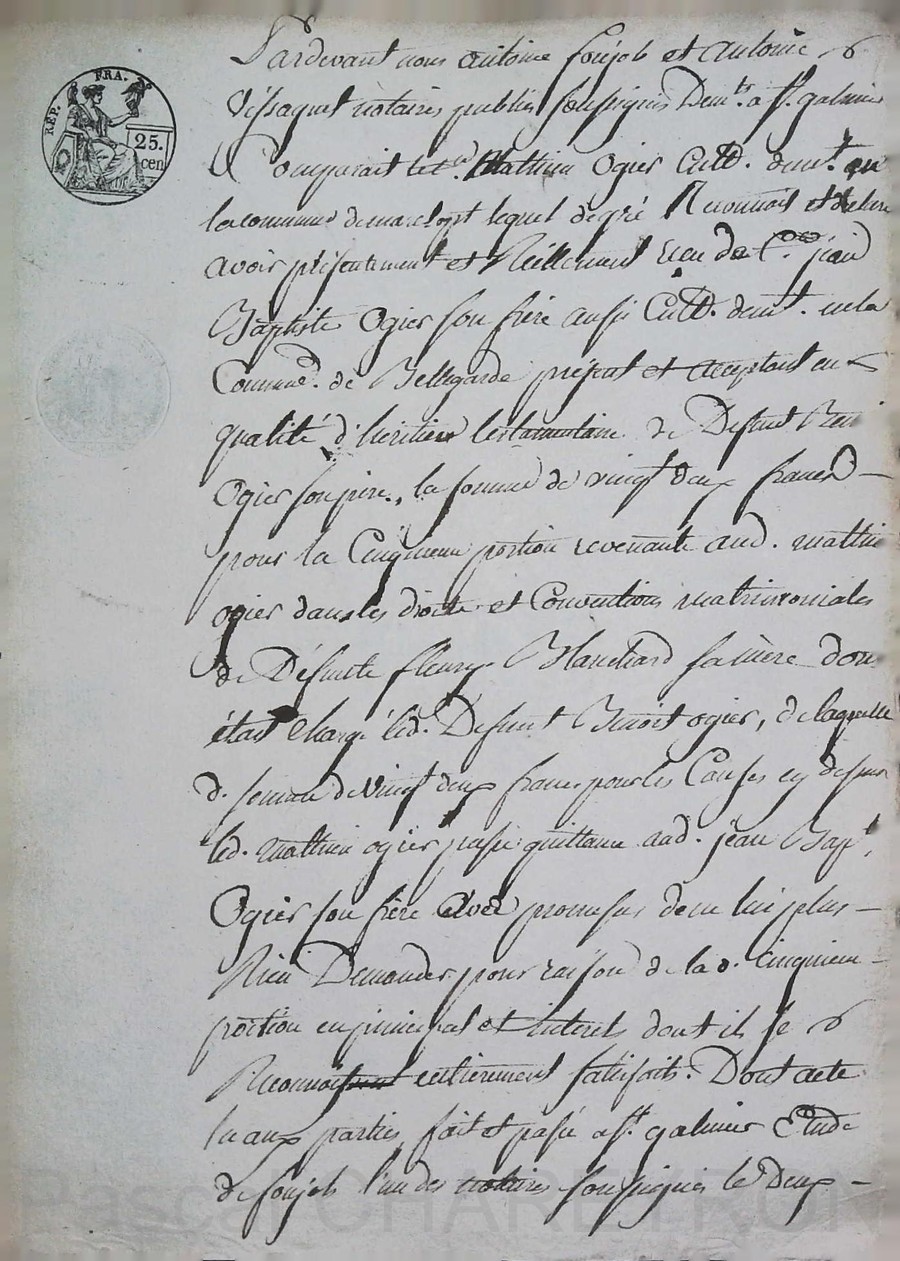 RÉP. FRA.
25.
cen
Pardevant nous antoine foujols et antoine
Vissaguet notaires publics soussignés Demt. a st. galmier
Comparait le cn. Mathieu Ogier Cultr. demt. en
la commune de marclopt lequel de gré Reconnoit et declare
avoir présentement et Réellement reçu de Cn. jean
Baptiste Ogier son frère aussi Cultr. demt. en la
Commune. de Bellegarde présent et acceptant en
qualité d'héritier testamentaire de Defunt
Ogier son père, la somme de vingt deux francs
pour la Cinquieme portion revenante aud. mathieu
ogier dans les droits et Conventions matrimoniales
de Défunte fleurye Blanchard sa mère dont
était chargé led. Defunt Benoit ogier, de laquelle
d. somme de vingt deux francs pour les Causes cy dessus
led. mathieu ogier passe quittance aud. jean Bapt.
Ogier son frère avec promesse de ne lui plus
Rien Demander pour raison de la d. cinquieme
portion en principal et interets dont il se
Reconnoit entierement satisfait. Dont acte
lu aux parties fait et passé a st. galmier Etude
de foujols l'un des notaires soussignés le Deux
Pascal CHAREYRON